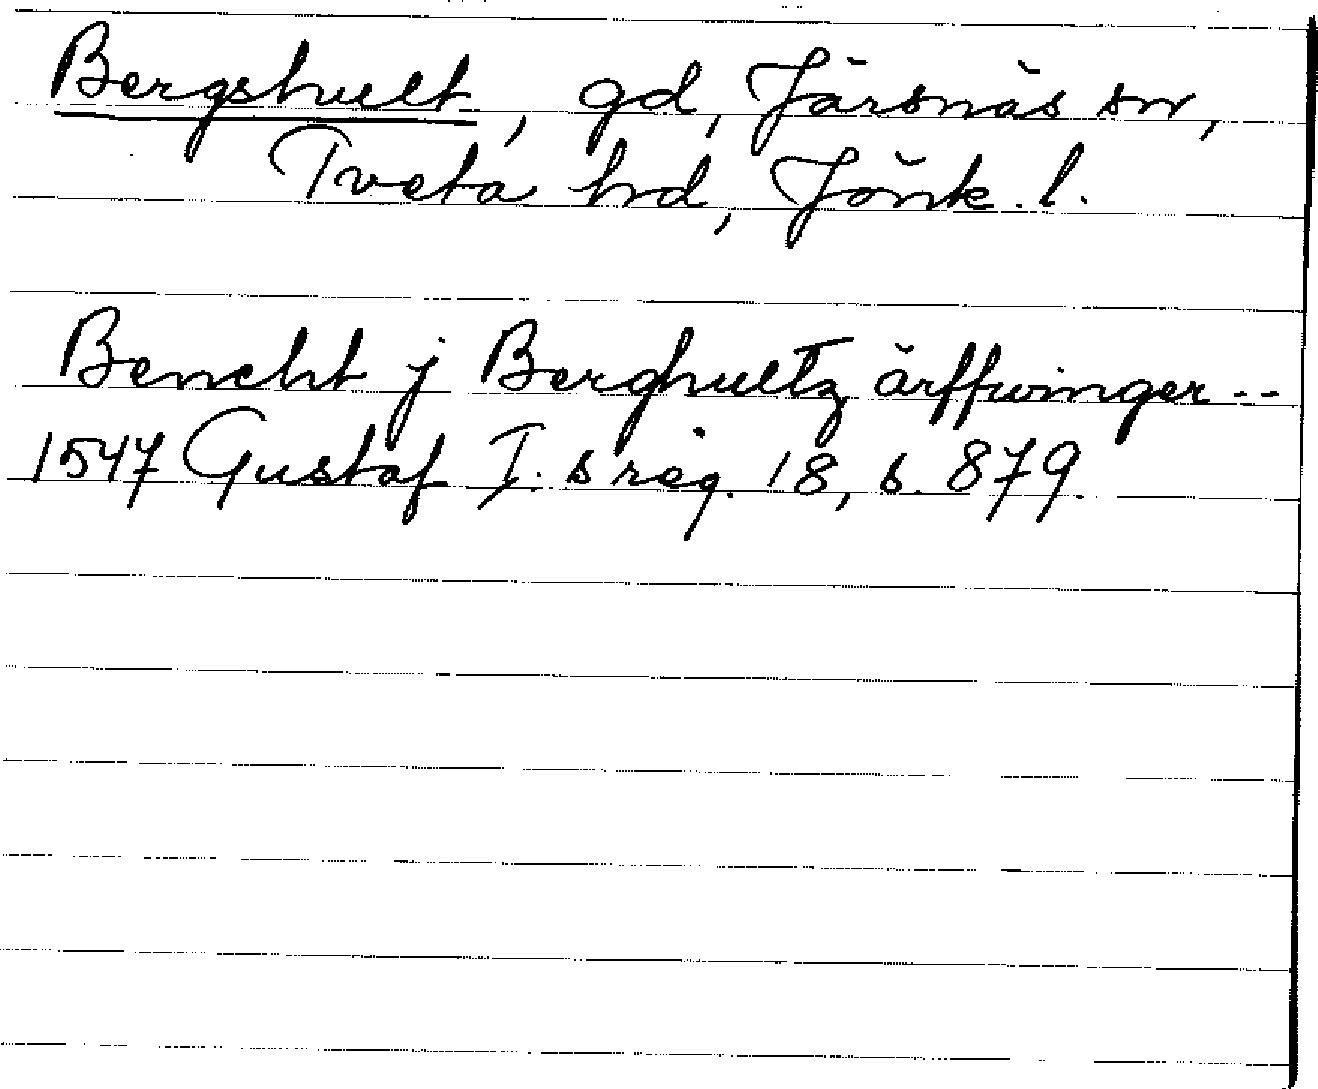 Bergshult, gd, Järsnäs sn,
Tveta hd, Jönk. l.
Bencht j Berghultz ärffwinger --
1547 Gustaf I:s reg. 18, s. 879.